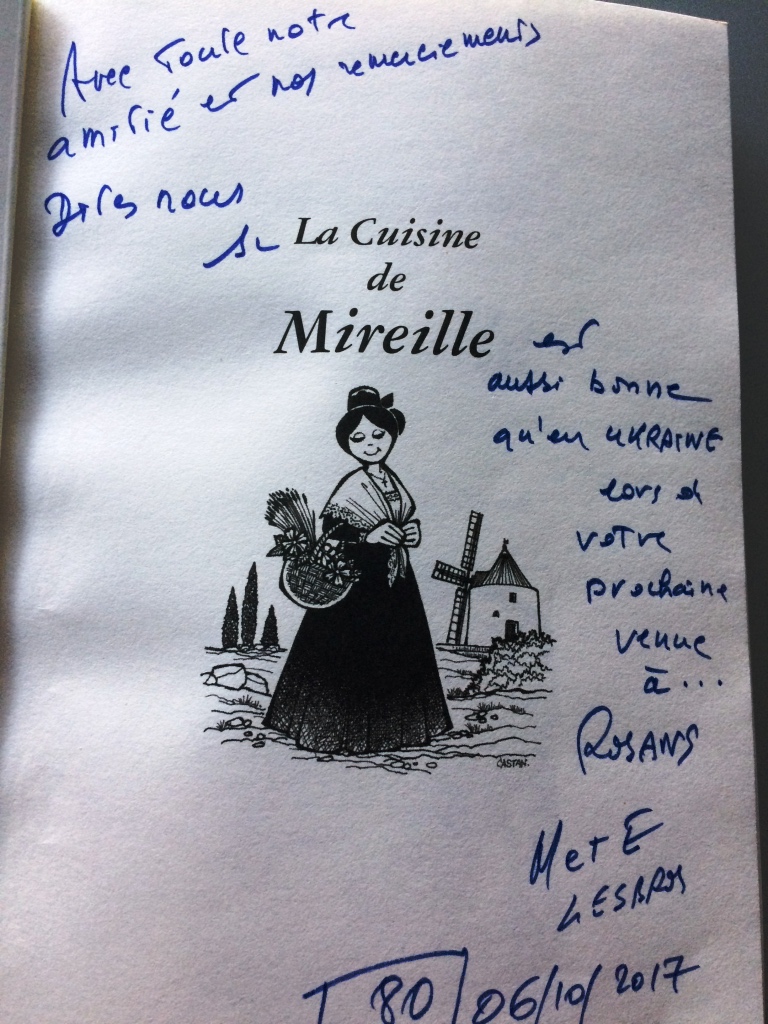 Avec toute notre
amitié et nos remerciements
Dites nous
si
La Cuisine
de
Mireille
est
aussi bonne
qu'en UKRAINE
lors d
votre
prochaine
venue
à...
ROSANS
M et E
LESBROS
80 06/10/2017
CASTAN.